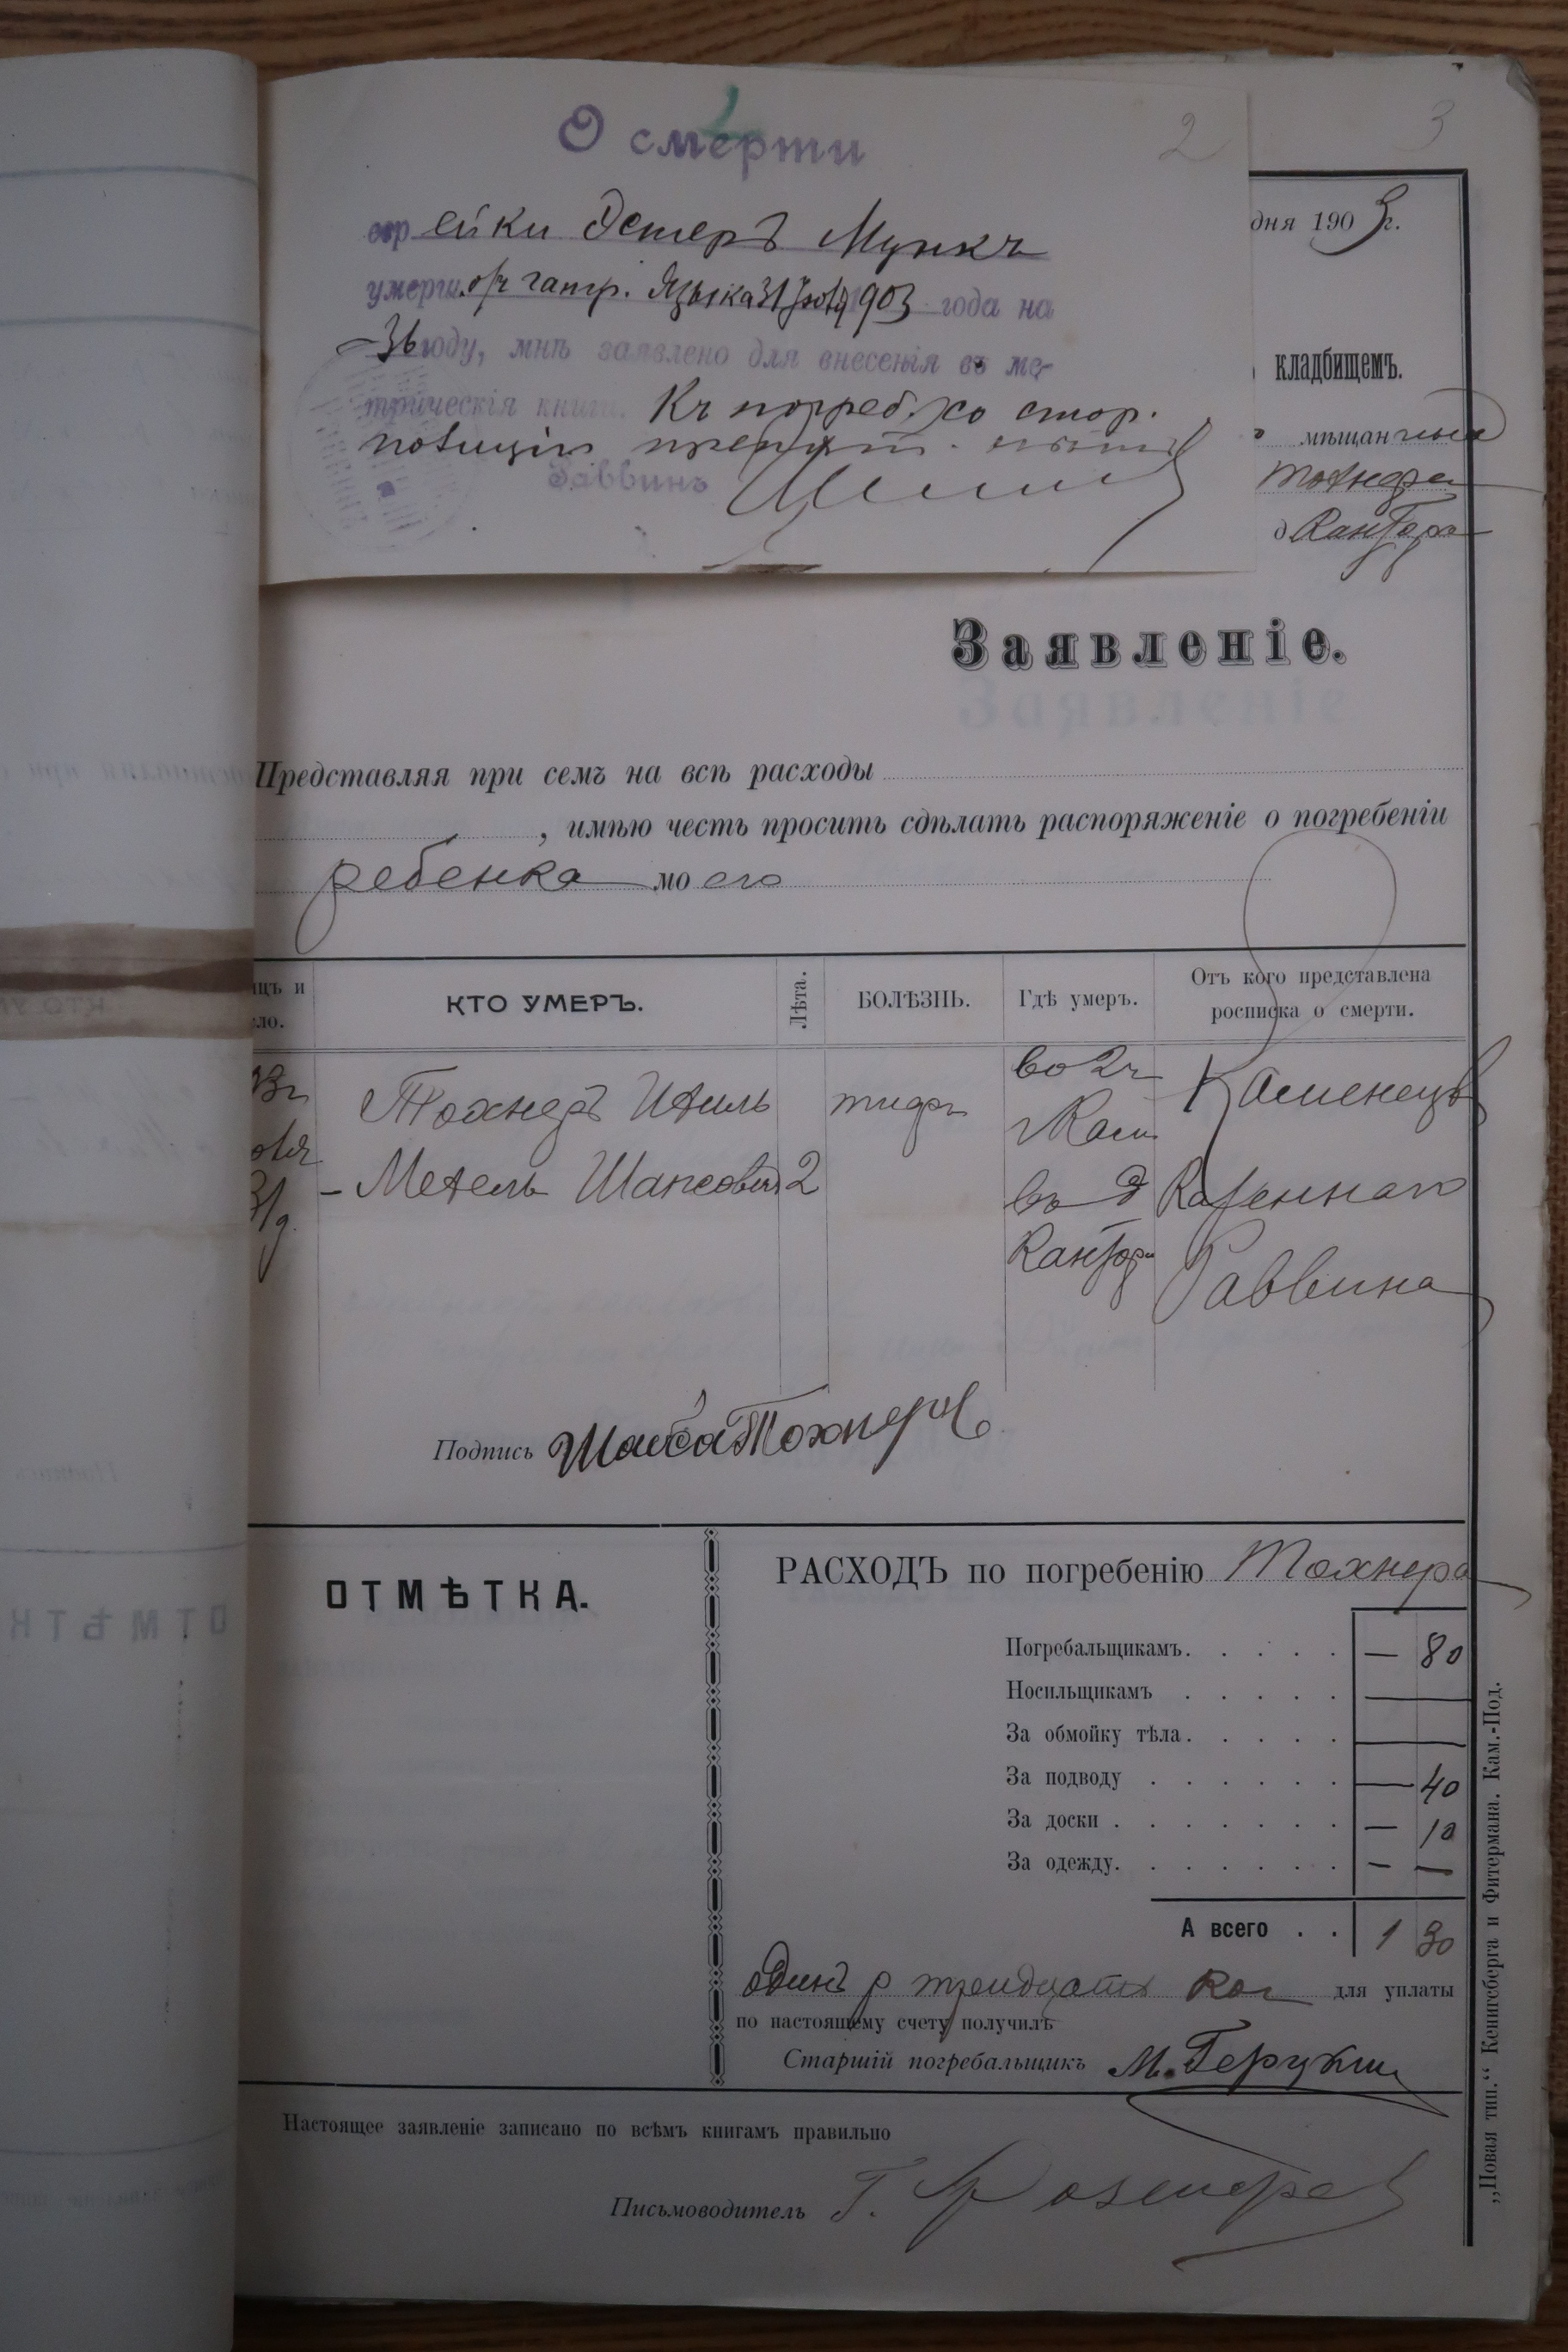 2
3
О смерти
еврейки Эстеръ Мункъ
умерш. отъ гангр. языка 31 1903 года на
36 году, мнѣ заявлено для внесенія въ ме-
трическія книги. Къ погреб. со стор.
полиціи препят. нѣтъ
Раввинъ
дня 1903 г.
кладбищемъ.
мѣщанина
Тохнера
д Кантора
Заявленіе.
Представляя при семъ на всѣ расходы
, имѣю честь просить сдѣлать распоряженіе о погребеніи
ребенка моего
яцъ и
ло.
КТО УМЕРЪ.
Лѣта.
БОЛѢЗНЬ.
Гдѣ умеръ.
Отъ кого представлена
росписка о смерти.
Тохнеръ Ицикъ тифъ во 2ч Каменецъ
г Кам
31 – Шапсовичъ 2 въ д Казеннаго
Кантора Раввина
Подпись Тохнеръ
ОТМѢТКА.
РАСХОДЪ по погребенію Тохнера
Погребальщикамъ. . . . . — 80
Носильщикамъ . . . . . —
За обмойку тѣла. . . . . —
За подводу . . . . . . — 40
За доски . . . . . . . — 10
За одежду. . . . . . . — —
А всего . . 1 30
одинъ р тридцать коп для уплаты
по настоящему счету получилъ
Старшій погребальщикъ М.
Настоящее заявленіе записано по всѣмъ книгамъ правильно
Письмоводитель Г.
„Новая тип.“ Кенигсберга и Фитермана. Кам.-Под.